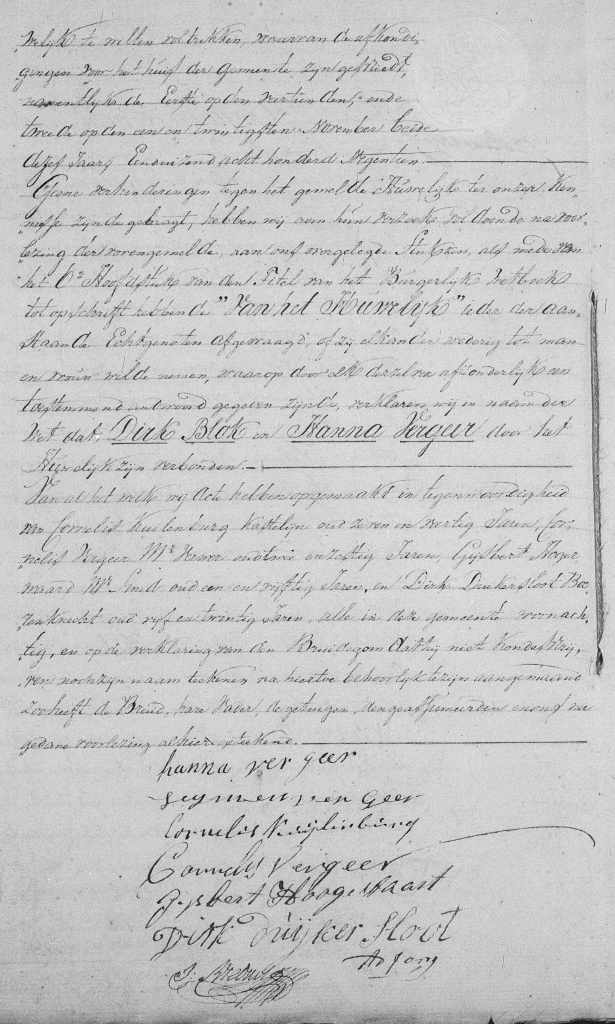 welijk te willen voltrekken, waarvan de afkondi,
gingen voor het huis der Gemeente zijn geschiedt,
namentlyk de Eerste op den veertienden, ende
tweede op den een en twintigsten November beide
dezes Jaars Eenduizend acht honderd Negentien
Geene verhinderingen tegen het gemelde Huwelijk ter onzer Ken,
nisse zijnde gebragt, hebben wij aan hun verzoek voldoende na voor
lezing der vorengemelde, aan ons voorgelegde stukken, als mede van
het 6e Hoofdstuk van den Titel van het Burgerlijk Wetboek
tot opschrift hebbende "Van het Huwelyk" ieder der aan,
staande Echtgenoten afgevraagd, of zij elkander wederzijds tot man
en vrouw wilde nemen, waarop door elk derzelven afzonderlyk een
toestemmend antwoord gegeven zynde, verklaren wy in naam der
Wet dat, Dirk Blok en Hanna Vergeer door het
Huwelijk zyn verbonden.
Van al het welk wy Acte hebben opgemaakt in tegenwoordigheid
van Cornelis Kuilenburg Kastelyn oud zeven en veertig Jaren, Cor,
nelis Vergeer Mr oud en zestig Jaren, Gijsbert Hooge
waard Mr Smid oud een en vyftig Jaren, en Dirk Duikersloot Bou
wknecht oud vijf en twintig Jaren, alle in deze gemeente woonach,
tig, en op de verklaring van den Bruidegom dat hij niet konde schrij,
ven noch zijn naam teekenen na hiertoe behoorlyk te zyn aangemaand
zoo heeft de Bruid, hare Vader, de getuigen, den geassumeerden en ons na
gedane voorlezing alhier getekend.
hanna ver geer
seymen ver geer
Cornelis Kuijlenburg
Cornelis Vergeer
Gijsbert Hoogewaart
Dirk Duijker sloot